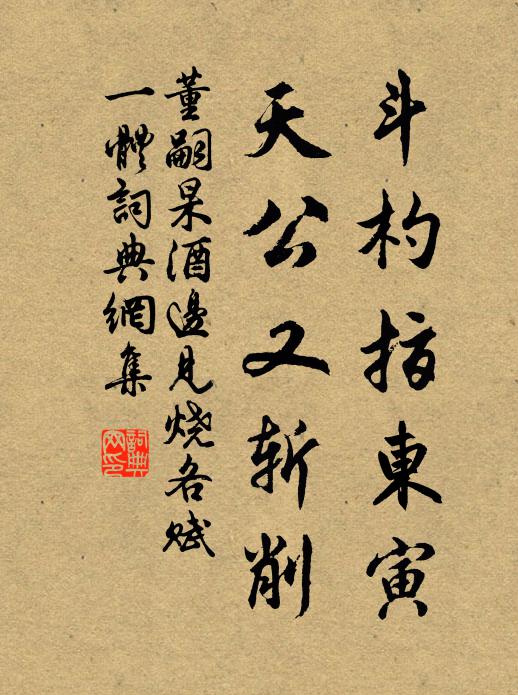 斗杓指東寅
天公又斬削
董嗣杲酒邊見燒各賦
一體詞典網集
詞典網印